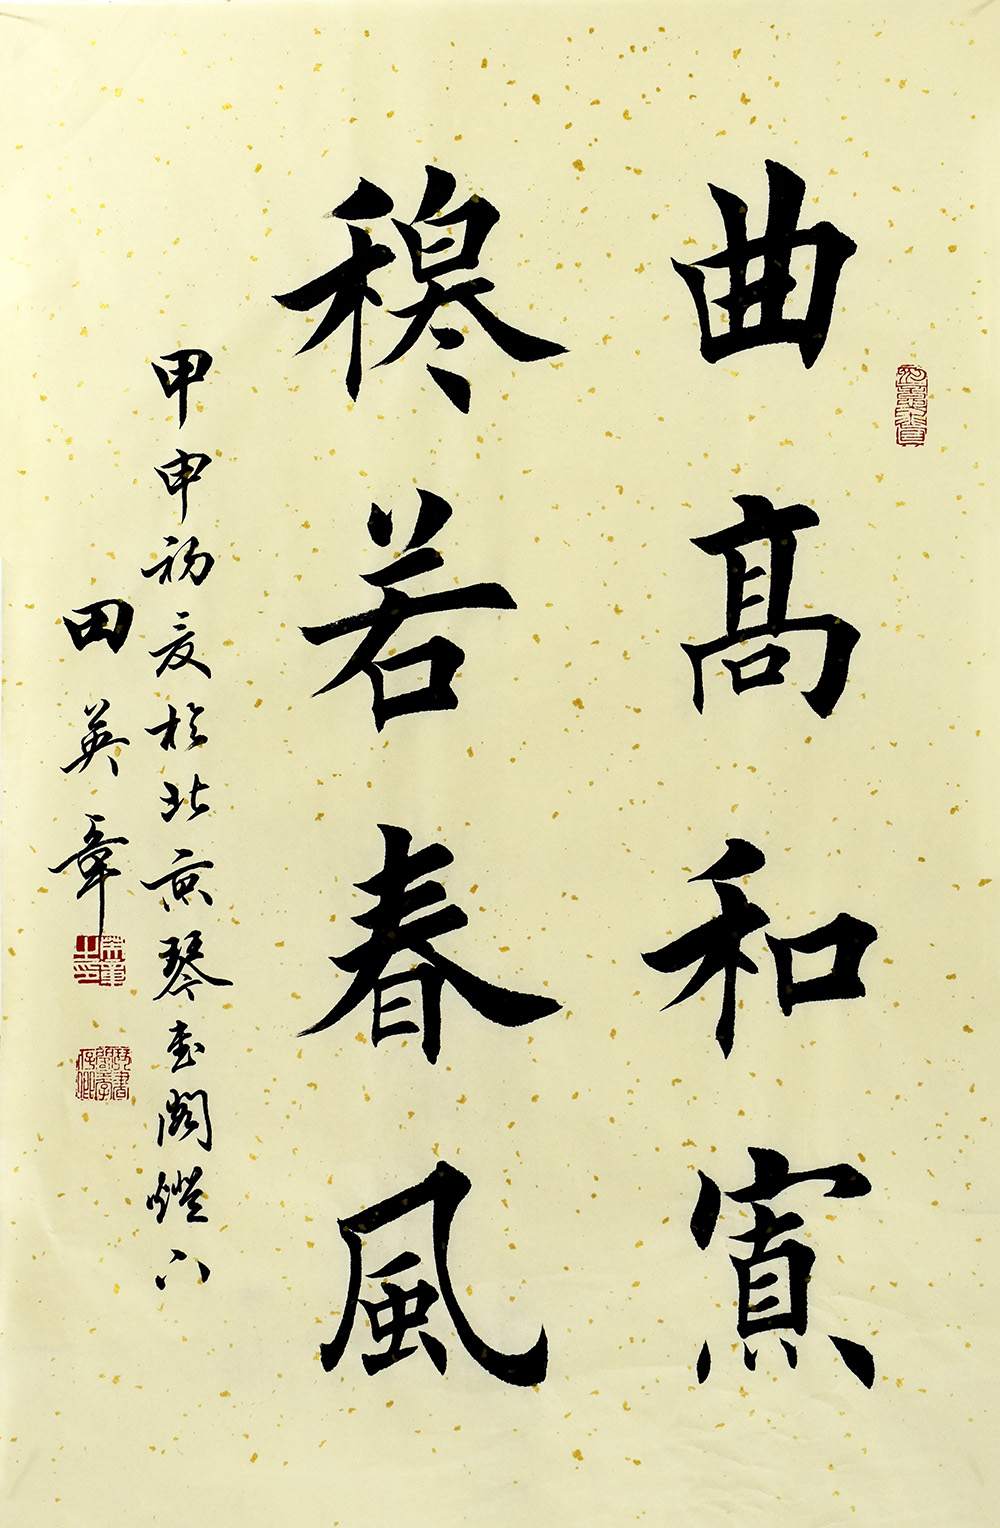 曲高和寡
穆若春風
甲申初夏於北京琴書閣燈下
田英章